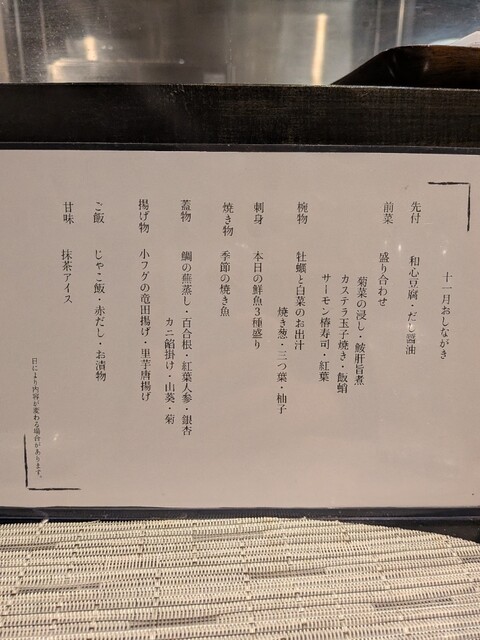 十一月おしながき
先付　和心豆腐・だし醤油
前菜　盛り合わせ
菊菜の浸し・鮟肝旨煮
カステラ玉子焼き・飯蛸
サーモン椿寿司・紅葉
椀物　牡蠣と白菜のお出汁
焼き葱・三つ葉・柚子
刺身　本日の鮮魚3種盛り
焼き物　季節の焼き魚
蓋物　鯛の蕪蒸し・百合根・紅葉人参・銀杏
カニ餡掛け・山葵・菊
揚げ物　小フグの竜田揚げ・里芋唐揚げ
ご飯　じゃこ飯・赤だし・お漬物
甘味　抹茶アイス
日により内容が変わる場合があります。